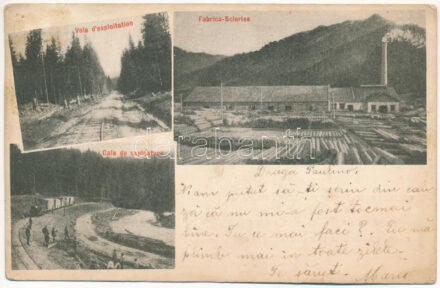 Voie d'exploitation
Fabrica-Scieries
Cale de
darabanth.com
Draga Paulino,
N'am putut să-ți scriu din cau
ză că nu mi-a fost tocmai
bine. Tu ce mai faci? Eu mă
plimb mai în toate zilele.
Te sarut. Mario